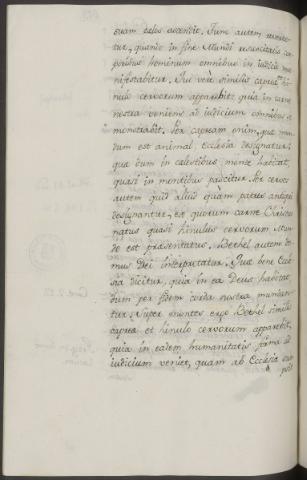 suam celos ascendit. Tum autem revertetur
tur, quando in fine Mundi resuscitatis cor
poribus hominum omnibus in judicio ma
nifestabitur. Qui vere similis capreæ hin
nulo cervorum apparebit: quia in carne
nostra veniens ad iudicium omnibus se
monstrabit. Per capream enim, quæ mun
dum est animal, Ecclesia designatur,
quæ dum in celestibus mente habitat,
quasi in montibus pascitur. Per cervos
autem quid aliud quàm patres antiqui
designantur, ex quorum carne Christus
natus quasi hinulus cervorum Mun
do est præsentatus. Bethel autem do
mus Dei interpretatur. Quæ bene Eccle
sia dicitur, quia in ea Deus habitat
dum per fidem corda nostra mundan
tur. Super montes ergo Bethel similis
capreæ et hinulo cervorum apparebit,
quia in eadem humanitatis forma ad
iudicium veniet, quam ab Ecclesia